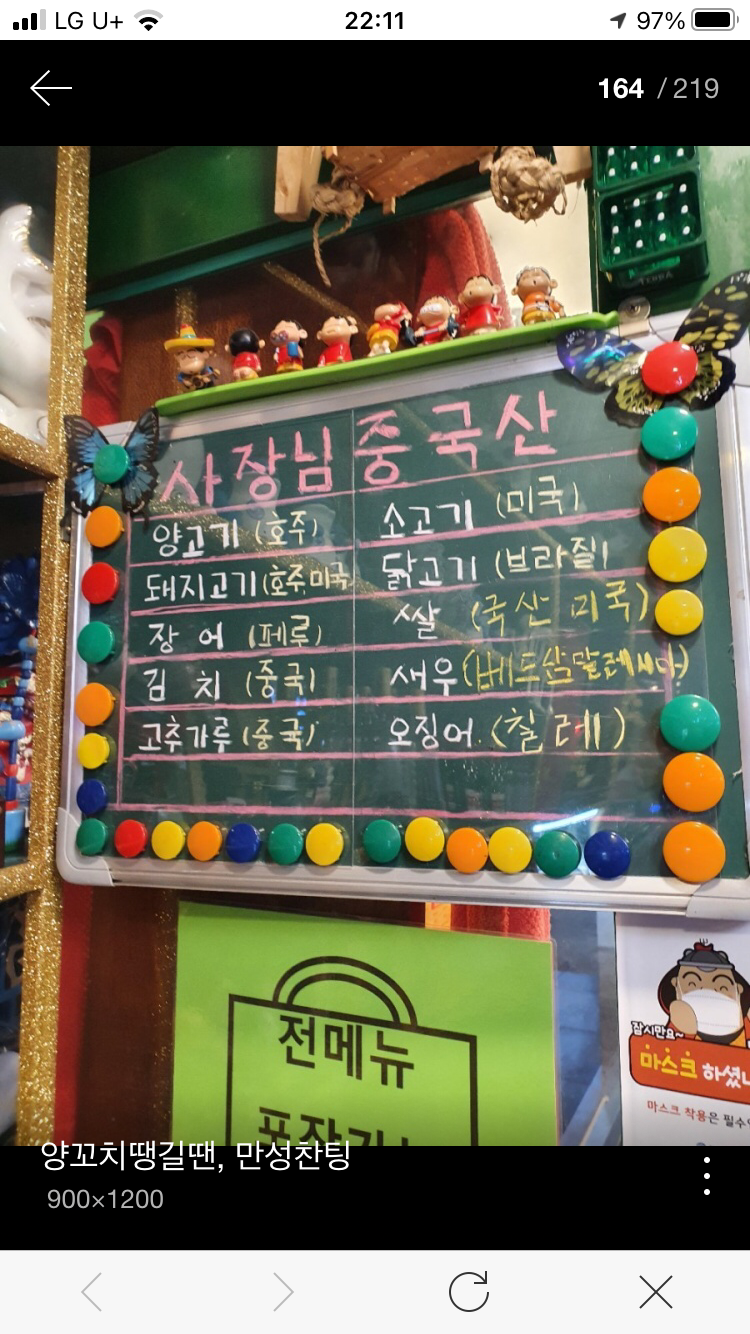 LG U+ 22:11 97%
164 / 219
사장님 중국산
양고기 (호주) 소고기 (미국)
돼지고기 (호주, 미국) 닭고기 (브라질)
장 어 (페루) 쌀 (국산 미국)
김 치 (중국) 새우 (베트남말레시아)
고추가루 (중국) 오징어. (칠레)
전메뉴
잠시만요~
마스크 하셨나
마스크 착용은 필수
양꼬치땡길땐, 만성찬팅
900×1200